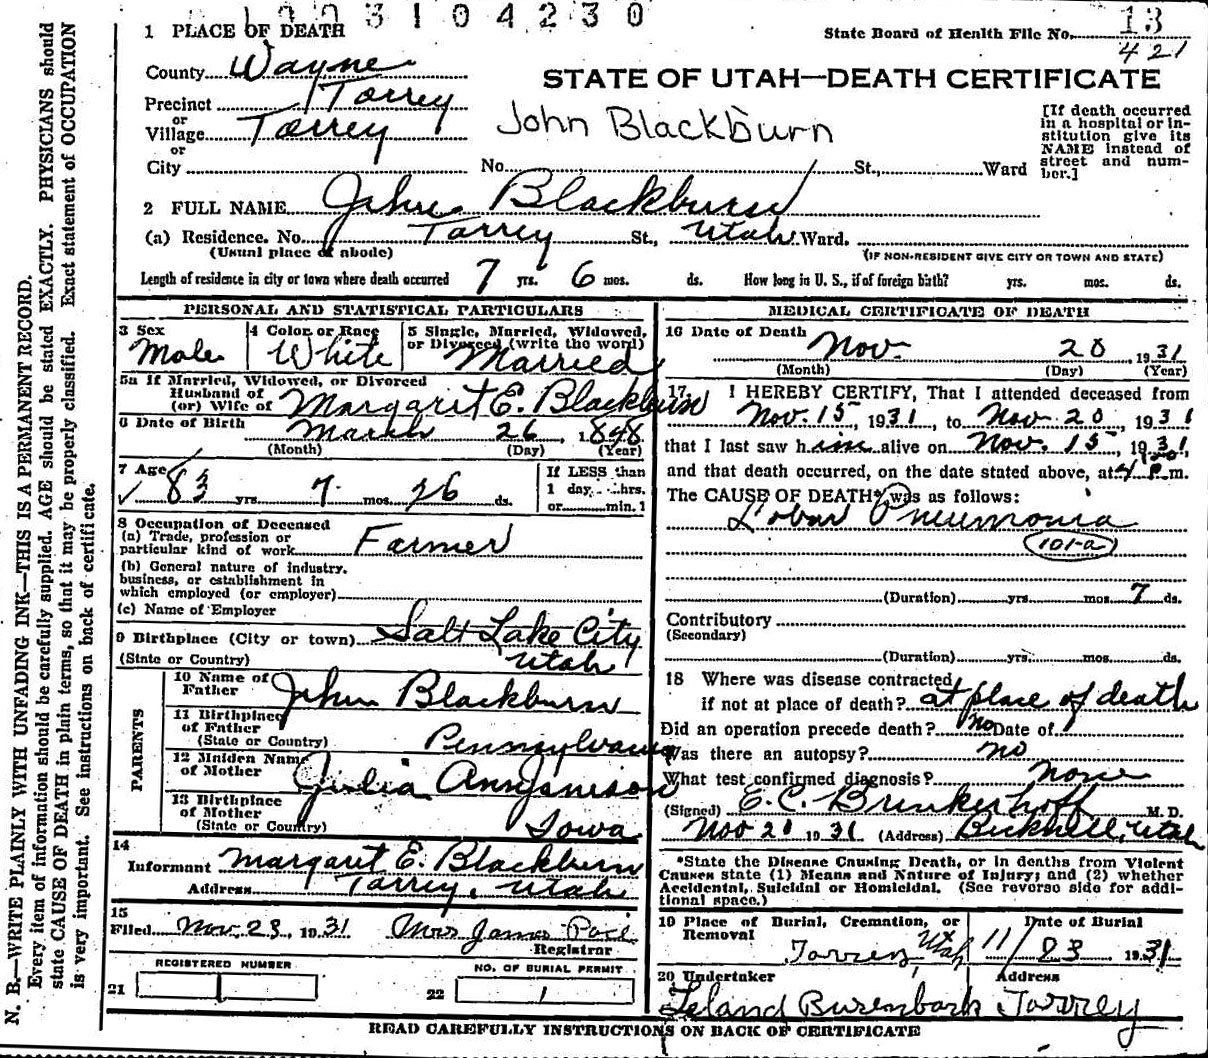 1003104230
1 PLACE OF DEATH
State Board of Health File No. 13
421
County Wayne
STATE OF UTAH—DEATH CERTIFICATE
Precinct Torrey
or
Village Torrey
or
City
John Blackburn
[If death occurred in a hospital or in-
stitution give its
NAME instead of
street and num-
ber.]
No. St., Ward
2 FULL NAME John Blackburn
(a) Residence. No. Torrey St., Utah Ward.
(Usual place of abode)
(IF NON-RESIDENT GIVE CITY OR TOWN AND STATE)
Length of residence in city or town where death occurred 7 yrs. 6 mos. ds. How long in U. S., if of foreign birth? yrs. mos. ds.
PERSONAL AND STATISTICAL PARTICULARS
3 Sex
Male
4 Color or Race
White
5 Single, Married, Widowed,
or Divorced (write the word)
Married
5a If Married, Widowed, or Divorced
Husband of
(or) Wife of Margarit E. Blackburn
6 Date of Birth March 26, 1848
(Month) (Day) (Year)
7 Age
83 yrs. 7 mos. 26 ds.
If LESS than
1 day, hrs.
or min. ?
8 Occupation of Deceased
(a) Trade, profession or
particular kind of work Farmer
(b) General nature of industry,
business, or establishment in
which employed (or employer)
(c) Name of Employer
9 Birthplace (City or town) Salt Lake City
(State or Country) Utah
PARENTS
10 Name of
Father John Blackburn
11 Birthplace
of Father
(State or Country) Pennsylvania
12 Maiden Name
of Mother Julia Ann Jamison
13 Birthplace
of Mother
(State or Country) Iowa
14
Informant Margaret E. Blackburn
Address Torrey, Utah
15
Filed Nov. 23, 1931 Mrs James Pace
Registrar
REGISTERED NUMBER
21
NO. OF BURIAL PERMIT
22 1
MEDICAL CERTIFICATE OF DEATH
16 Date of Death
Nov 20, 1931
(Month) (Day) (Year)
17 I HEREBY CERTIFY, That I attended deceased from
Nov. 15, 1931, to Nov. 20, 1931
that I last saw him alive on Nov. 15, 1931,
and that death occurred, on the date stated above, at 4 P. m.
The CAUSE OF DEATH* was as follows:
Lobar Pneumonia
101-a
(Duration) yrs. mos. 7 ds.
Contributory
(Secondary)
(Duration) yrs. mos. ds.
18 Where was disease contracted
if not at place of death? at place of death
Did an operation precede death? no Date of
Was there an autopsy? no
What test confirmed diagnosis? none
(Signed) E. C. Brinkerhoff M. D.
Nov 21 1931 (Address) Bicknell, Utah
*State the Disease Causing Death, or in deaths from Violent
Causes state (1) Means and Nature of Injury; and (2) whether
Accidental, Suicidal or Homicidal. (See reverse side for addi-
tional space.)
19 Place of Burial, Cremation, or
Removal
Torrey, Utah
Date of Burial
11/23 1931
20 Undertaker
Leland Address
Torrey
READ CAREFULLY INSTRUCTIONS ON BACK OF CERTIFICATE
N. B.—WRITE PLAINLY WITH UNFADING INK—THIS IS A PERMANENT RECORD.
Every item of information should be carefully supplied. AGE should be stated EXACTLY. PHYSICIANS should
state CAUSE OF DEATH in plain terms, so that it may be properly classified. Exact statement of OCCUPATION
is very important. See instructions on back of certificate.